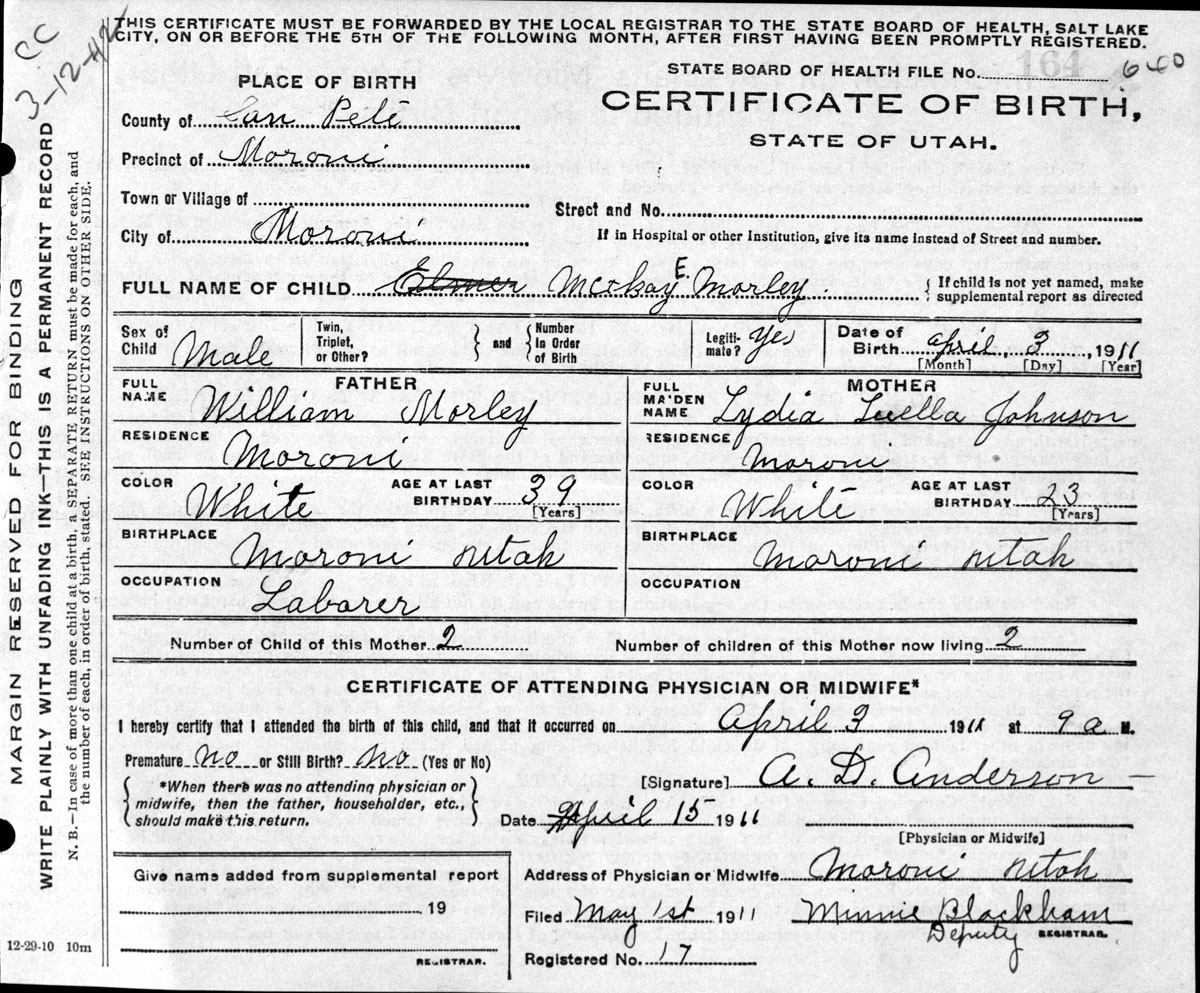 THIS CERTIFICATE MUST BE FORWARDED BY THE LOCAL REGISTRAR TO THE STATE BOARD OF HEALTH, SALT LAKE
CITY, ON OR BEFORE THE 5TH OF THE FOLLOWING MONTH, AFTER FIRST HAVING BEEN PROMPTLY REGISTERED.
CC
3-12-42
STATE BOARD OF HEALTH FILE No. 164 640
PLACE OF BIRTH
CERTIFICATE OF BIRTH,
STATE OF UTAH.
County of San Pete
Precinct of Moroni
Town or Village of
Street and No.
City of Moroni
If in Hospital or other Institution, give its name instead of Street and number.
FULL NAME OF CHILD Elmer McKay E. Morley { If child is not yet named, make
supplemental report as directed
Sex of Child Male Twin, Triplet, or Other? { and } { Number In Order of Birth Legiti-mate? Yes Date of Birth April, 3, 1911
[Month] [Day] [Year]
FATHER
FULL NAME William Morley
RESIDENCE Moroni
COLOR White AGE AT LAST BIRTHDAY 39
[Years]
BIRTHPLACE Moroni utah
OCCUPATION Laborer
MOTHER
FULL MAIDEN NAME Lydia Luella Johnson
RESIDENCE Moroni
COLOR White AGE AT LAST BIRTHDAY 23
[Years]
BIRTHPLACE Moroni utah
OCCUPATION
Number of Child of this Mother 2 Number of children of this Mother now living 2
CERTIFICATE OF ATTENDING PHYSICIAN OR MIDWIFE*
I hereby certify that I attended the birth of this child, and that it occurred on April 3 1911 at 9 a M.
Premature No or Still Birth? No (Yes or No)
{ *When there was no attending physician or
midwife, then the father, householder, etc.,
should make this return. }
[Signature] A. D. Anderson
Date April 15 1911
[Physician or Midwife]
Address of Physician or Midwife Moroni utah
Give name added from supplemental report
19
REGISTRAR.
Filed May 1st 1911 Minnie Blackham
Deputy REGISTRAR.
Registered No. 17
12-29-10 10m
MARGIN RESERVED FOR BINDING
WRITE PLAINLY WITH UNFADING INK—THIS IS A PERMANENT RECORD
N. B.—In case of more than one child at a birth, a SEPARATE RETURN must be made for each, and
the number of each, in order of birth, stated. SEE INSTRUCTIONS ON OTHER SIDE.